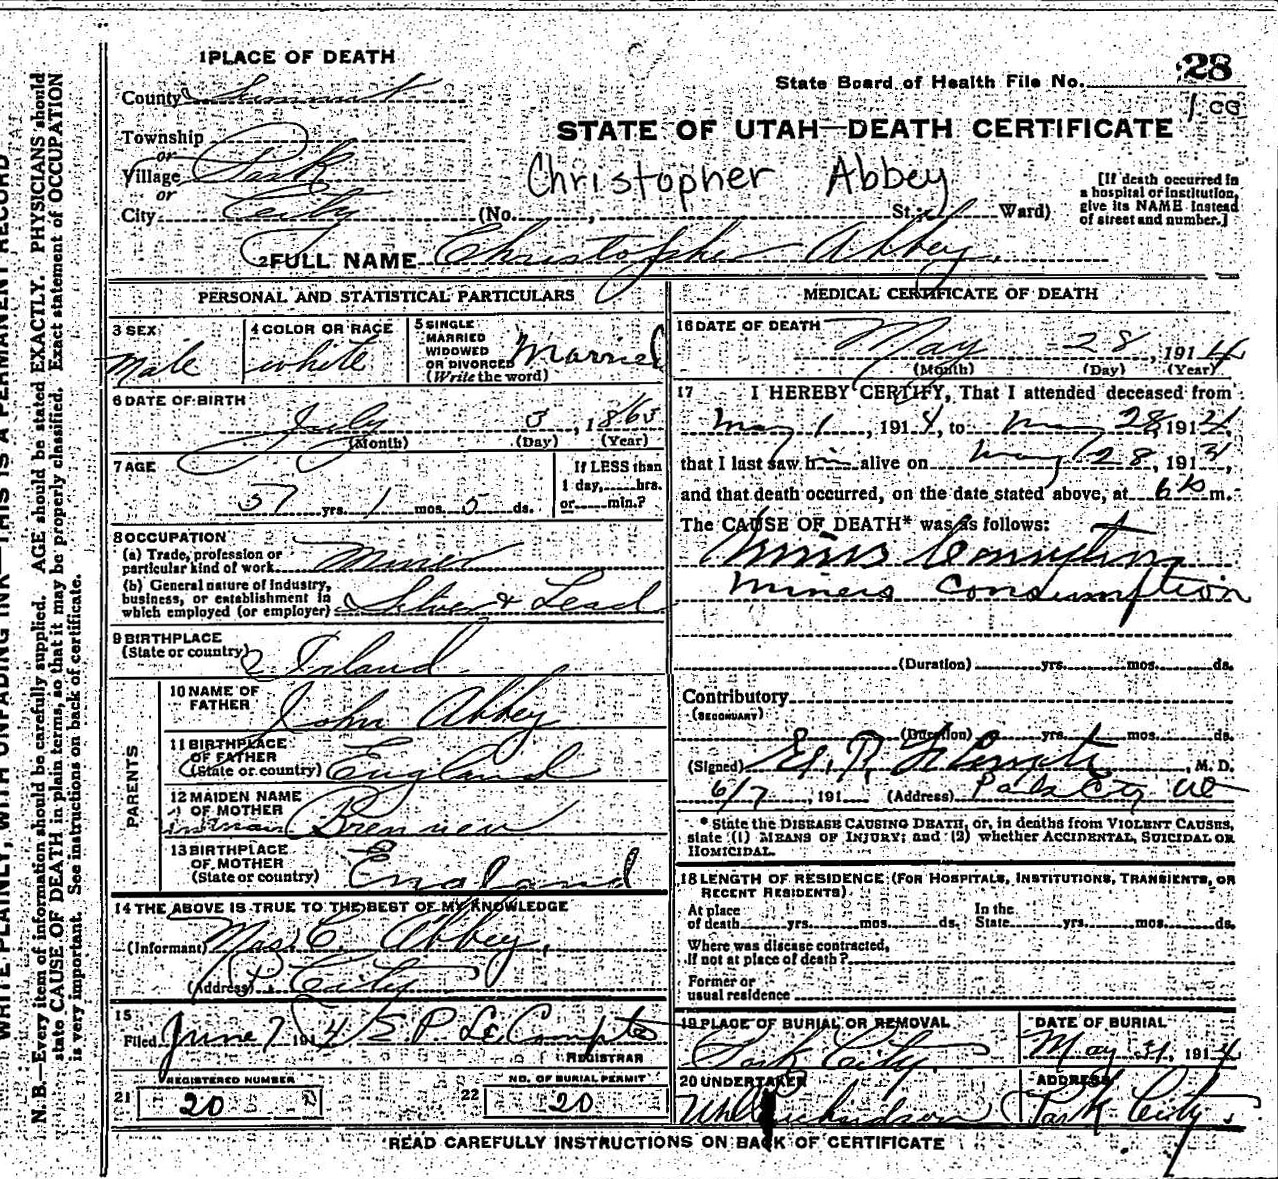 WRITE PLAINLY, WITH UNFADING INK—THIS IS A PERMANENT RECORD
N. B.—Every item of information should be carefully supplied. AGE should be stated EXACTLY. PHYSICIANS should
state CAUSE OF DEATH in plain terms, so that it may be properly classified. Exact statement of OCCUPATION
is very important. See instructions on back of certificate.
1 PLACE OF DEATH
County Summit
Township
or
Village Park
or
City City
State Board of Health File No. 28
1 CG
STATE OF UTAH—DEATH CERTIFICATE
Christopher Abbey
(No. , St.; Ward)
[If death occurred in
a hospital or institution,
give its NAME instead
of street and number.]
2 FULL NAME Christopher Abbey.
PERSONAL AND STATISTICAL PARTICULARS
3 SEX
Male
4 COLOR OR RACE
white
5 SINGLE
MARRIED
WIDOWED
OR DIVORCED
(Write the word)
Married
6 DATE OF BIRTH
July 3, 1863
(Month) (Day) (Year)
7 AGE
57 yrs. 1 mos. 5 ds.
If LESS than
1 day, hrs.
or min.?
8 OCCUPATION
(a) Trade, profession or
particular kind of work Miner
(b) General nature of industry,
business, or establishment in
which employed (or employer) Silver & Lead
9 BIRTHPLACE
(State or country) Irland
PARENTS
10 NAME OF
FATHER John Abbey
11 BIRTHPLACE
OF FATHER
(State or country) England
12 MAIDEN NAME
OF MOTHER
Brennen
13 BIRTHPLACE
OF MOTHER
(State or country) England
14 THE ABOVE IS TRUE TO THE BEST OF MY KNOWLEDGE
(Informant) Mrs. C. Abbey,
(Address) P. City
15
Filed June 7 1914 E. P. Le Compte
REGISTRAR
21 REGISTERED NUMBER
20
22 NO. OF BURIAL PERMIT
20
MEDICAL CERTIFICATE OF DEATH
16 DATE OF DEATH
May 28, 1914
(Month) (Day) (Year)
17 I HEREBY CERTIFY, That I attended deceased from
May 1, 1914, to May 28, 1914,
that I last saw him alive on May 28, 191
and that death occurred, on the date stated above, at m.
The CAUSE OF DEATH* was as follows:
Miners Consumption
Miners Consumption
(Duration) yrs. mos. ds.
Contributory
(SECONDARY)
(Duration) yrs. mos. ds.
(Signed) E. P. Le Compte, M. D.
6/7, 191 (Address) Park City Ut
* State the DISEASE CAUSING DEATH, or, in deaths from VIOLENT CAUSES,
state (1) MEANS OF INJURY; and (2) whether ACCIDENTAL, SUICIDAL OR
HOMICIDAL.
18 LENGTH OF RESIDENCE (FOR HOSPITALS, INSTITUTIONS, TRANSIENTS, OR
RECENT RESIDENTS)
At place
of death yrs. mos. ds.
In the
State yrs. mos. ds.
Where was disease contracted,
If not at place of death?
Former or
usual residence
19 PLACE OF BURIAL OR REMOVAL
Park City
DATE OF BURIAL
May 31, 1914
20 UNDERTAKER
Richardson
ADDRESS
Park City
READ CAREFULLY INSTRUCTIONS ON BACK OF CERTIFICATE